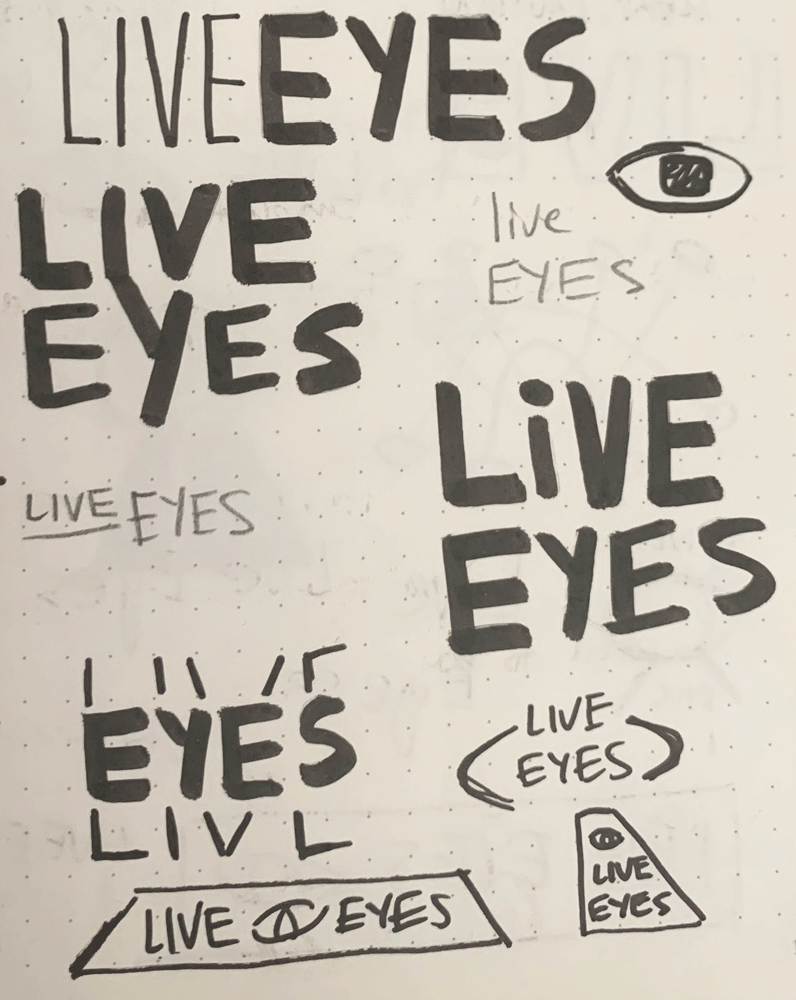 LIVEEYES
LIVE
EYES
live
EYES
LiVE
EYES
LIVE EYES
LIVE
EYES
LIVE
LIVE
EYES
LIVE EYES
LIVE
EYES